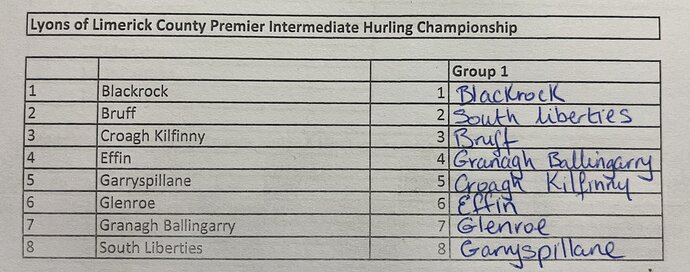 Lyons of Limerick County Premier Intermediate Hurling Championship
Group 1
1 Blackrock 1 Blackrock
2 Bruff 2 South liberties
3 Croagh Kilfinny 3 Bruff
4 Effin 4 Granagh Ballingarry
5 Garryspillane 5 Croagh Kilfinny
6 Glenroe 6 Effin
7 Granagh Ballingarry 7 Glenroe
8 South Liberties 8 Garryspillane